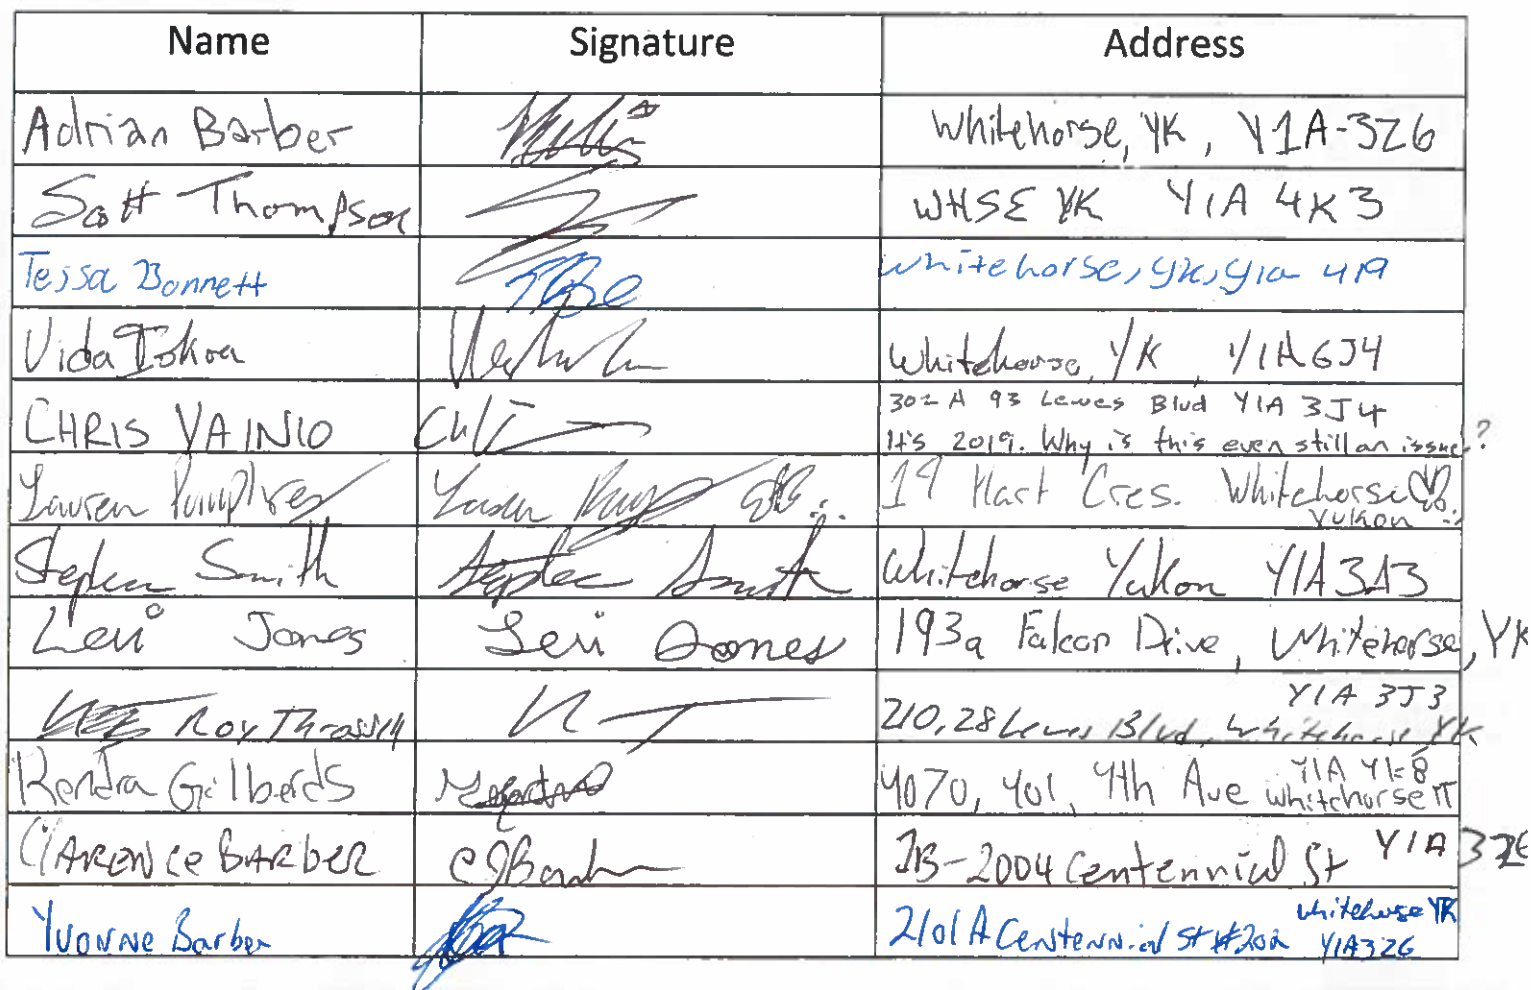 Name Signature Address
Adrian Barber Whitehorse, YK, Y1A-3Z6
Scott Thompson WHSE YK Y1A 4K3
Tessa Bonnett Whitehorse, YK, Y1a 419
Vida Whitehorse, YK, Y1A 6J4
CHRIS VAINIO 302 A 93 Lewes Blvd Y1A 3J4
It's 2019. Why is this even still an issue?
Lauren Pumphrey Lauren 19 Hart Cres. Whitehorse
Yukon
Stephen Smith Stephen Smith Whitehorse Yukon Y1A 3A3
Levi Jones Levi Jones 193a Falcon Drive, Whitehorse, YK
Y1A 3J3
Roy 210, 28 Lewes Blvd, Whitehorse YK
Kendra Gilberds 4070, 401, 4th Ave Y1A 4K8
Whitehorse YT
CLARENCE BARBER CJBarber 2B-2004 Centennial St Y1A 3Z6
Yvonne Barber 2101A Centennial St #202 Whitehorse YK
Y1A3Z6